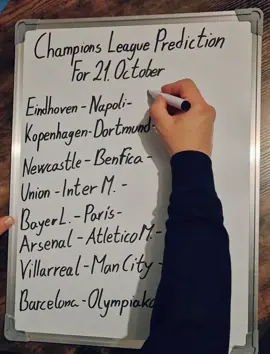 Champions League Prediction
For 21. October
Eindhoven - Napoli -
Kopenhagen - Dortmund -
Newcastle - Benfica -
Union - Inter M. -
Bayer L. - Paris -
Arsenal - Atletico M. -
Villarreal - Man City -
Barcelona - Olympiako